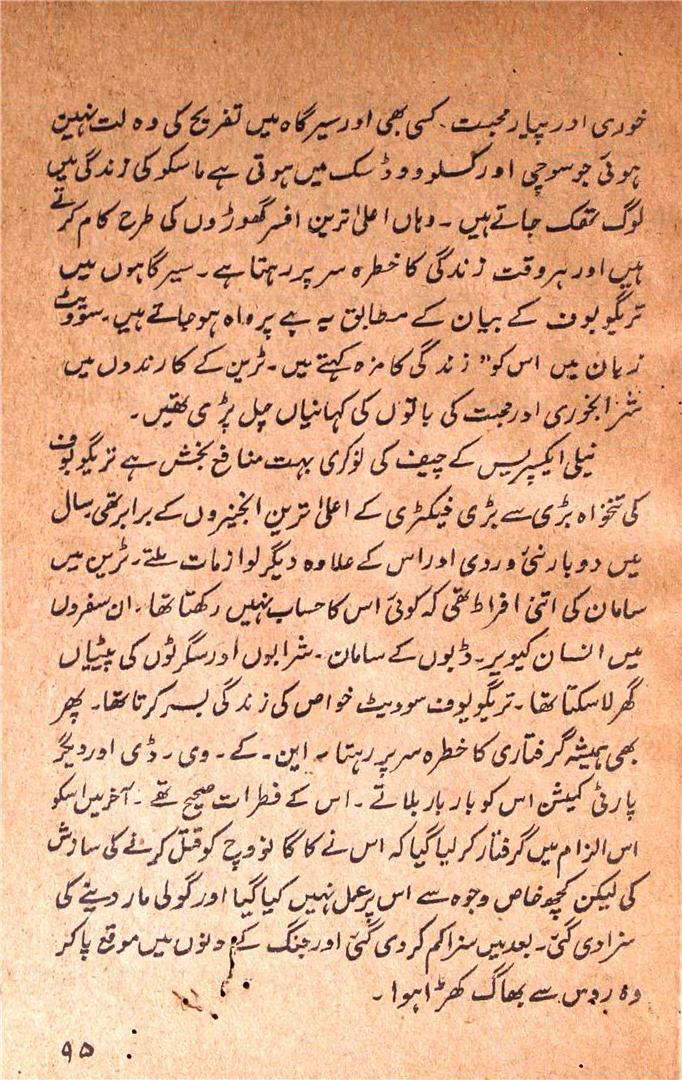 خوری اور پیار محبت۔ کسی بھی اور سیرگاہ میں تفریح کی وہ لت نہیں
ہوتی جو سوچی اور کسلوووڈسک میں ہوتی ہے ماسکو کی زندگی میں
لوگ تھک جاتے ہیں ۔ وہاں اعلیٰ ترین افسر گھوڑوں کی طرح کام کرتے
ہیں اور ہر وقت زندگی کا خطرہ سر پر رہتا ہے ۔ سیرگاہوں میں
تریگوبوف کے بیان کے مطابق یہ بے پرواہ ہو جاتے ہیں۔ سوویٹ
زبان میں اس کو” زندگی کا مزہ کہتے ہیں ۔ ٹرین کے کارندوں میں
شرابخوری اور محبت کی باتوں کی کہانیاں چل پڑی تھیں ۔
نیلی ایکسپریس کے چیف کی نوکری بہت منافع بخش ہے تریگوبوف
کی تنخواہ بڑی سے بڑی فیکٹری کے اعلیٰ ترین انجینروں کے برابر تھی سال
میں دوبار نئی وردی اور اس کے علاوہ دیگر لوازمات ملتے۔ ٹرین میں
سامان کی اتنی افراط تھی کہ کوئی اس کا حساب نہیں رکھتا تھا ۔ ان سفروں
میں انسان کیویر ۔ ڈبوں کے سامان ۔ شرابوں اور سگرٹوں کی پیٹیاں
گھر لا سکتا تھا ۔ تریگوبوف سوویٹ خواص کی زندگی بسر کرتا تھا۔ پھر
بھی ہمیشہ گرفتاری کا خطرہ سر پر رہتا ۔ این ۔ کے ۔ وی ۔ ڈی اور دیگر
پارٹی کمیشن اس کو بار بار بلاتے ۔ اس کے خطرات صحیح تھے ۔ آخر میں اسکو
اس الزام میں گرفتار کر لیا گیا کہ اس نے کاگا نووچ کو قتل کرنے کی سازش
کی لیکن کچھ خاص وجوہ سے اس پر عمل نہیں کیا گیا اور گولی مار دینے کی
سزا دی گئی ۔ بعد میں سزا کم کر دی گئی اور جنگ کے دنوں میں موقع پا کر
وہ روس سے بھاگ کھڑا ہوا ۔
۹۵